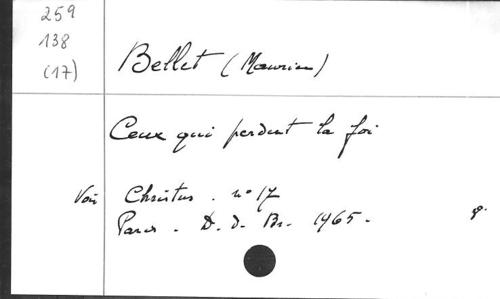 259
138
(17)
Bellet (Maurice)
Ceux qui perdent la foi
Voir Christus . n° 17
Paris . D. d. Br. 1965 - 8°